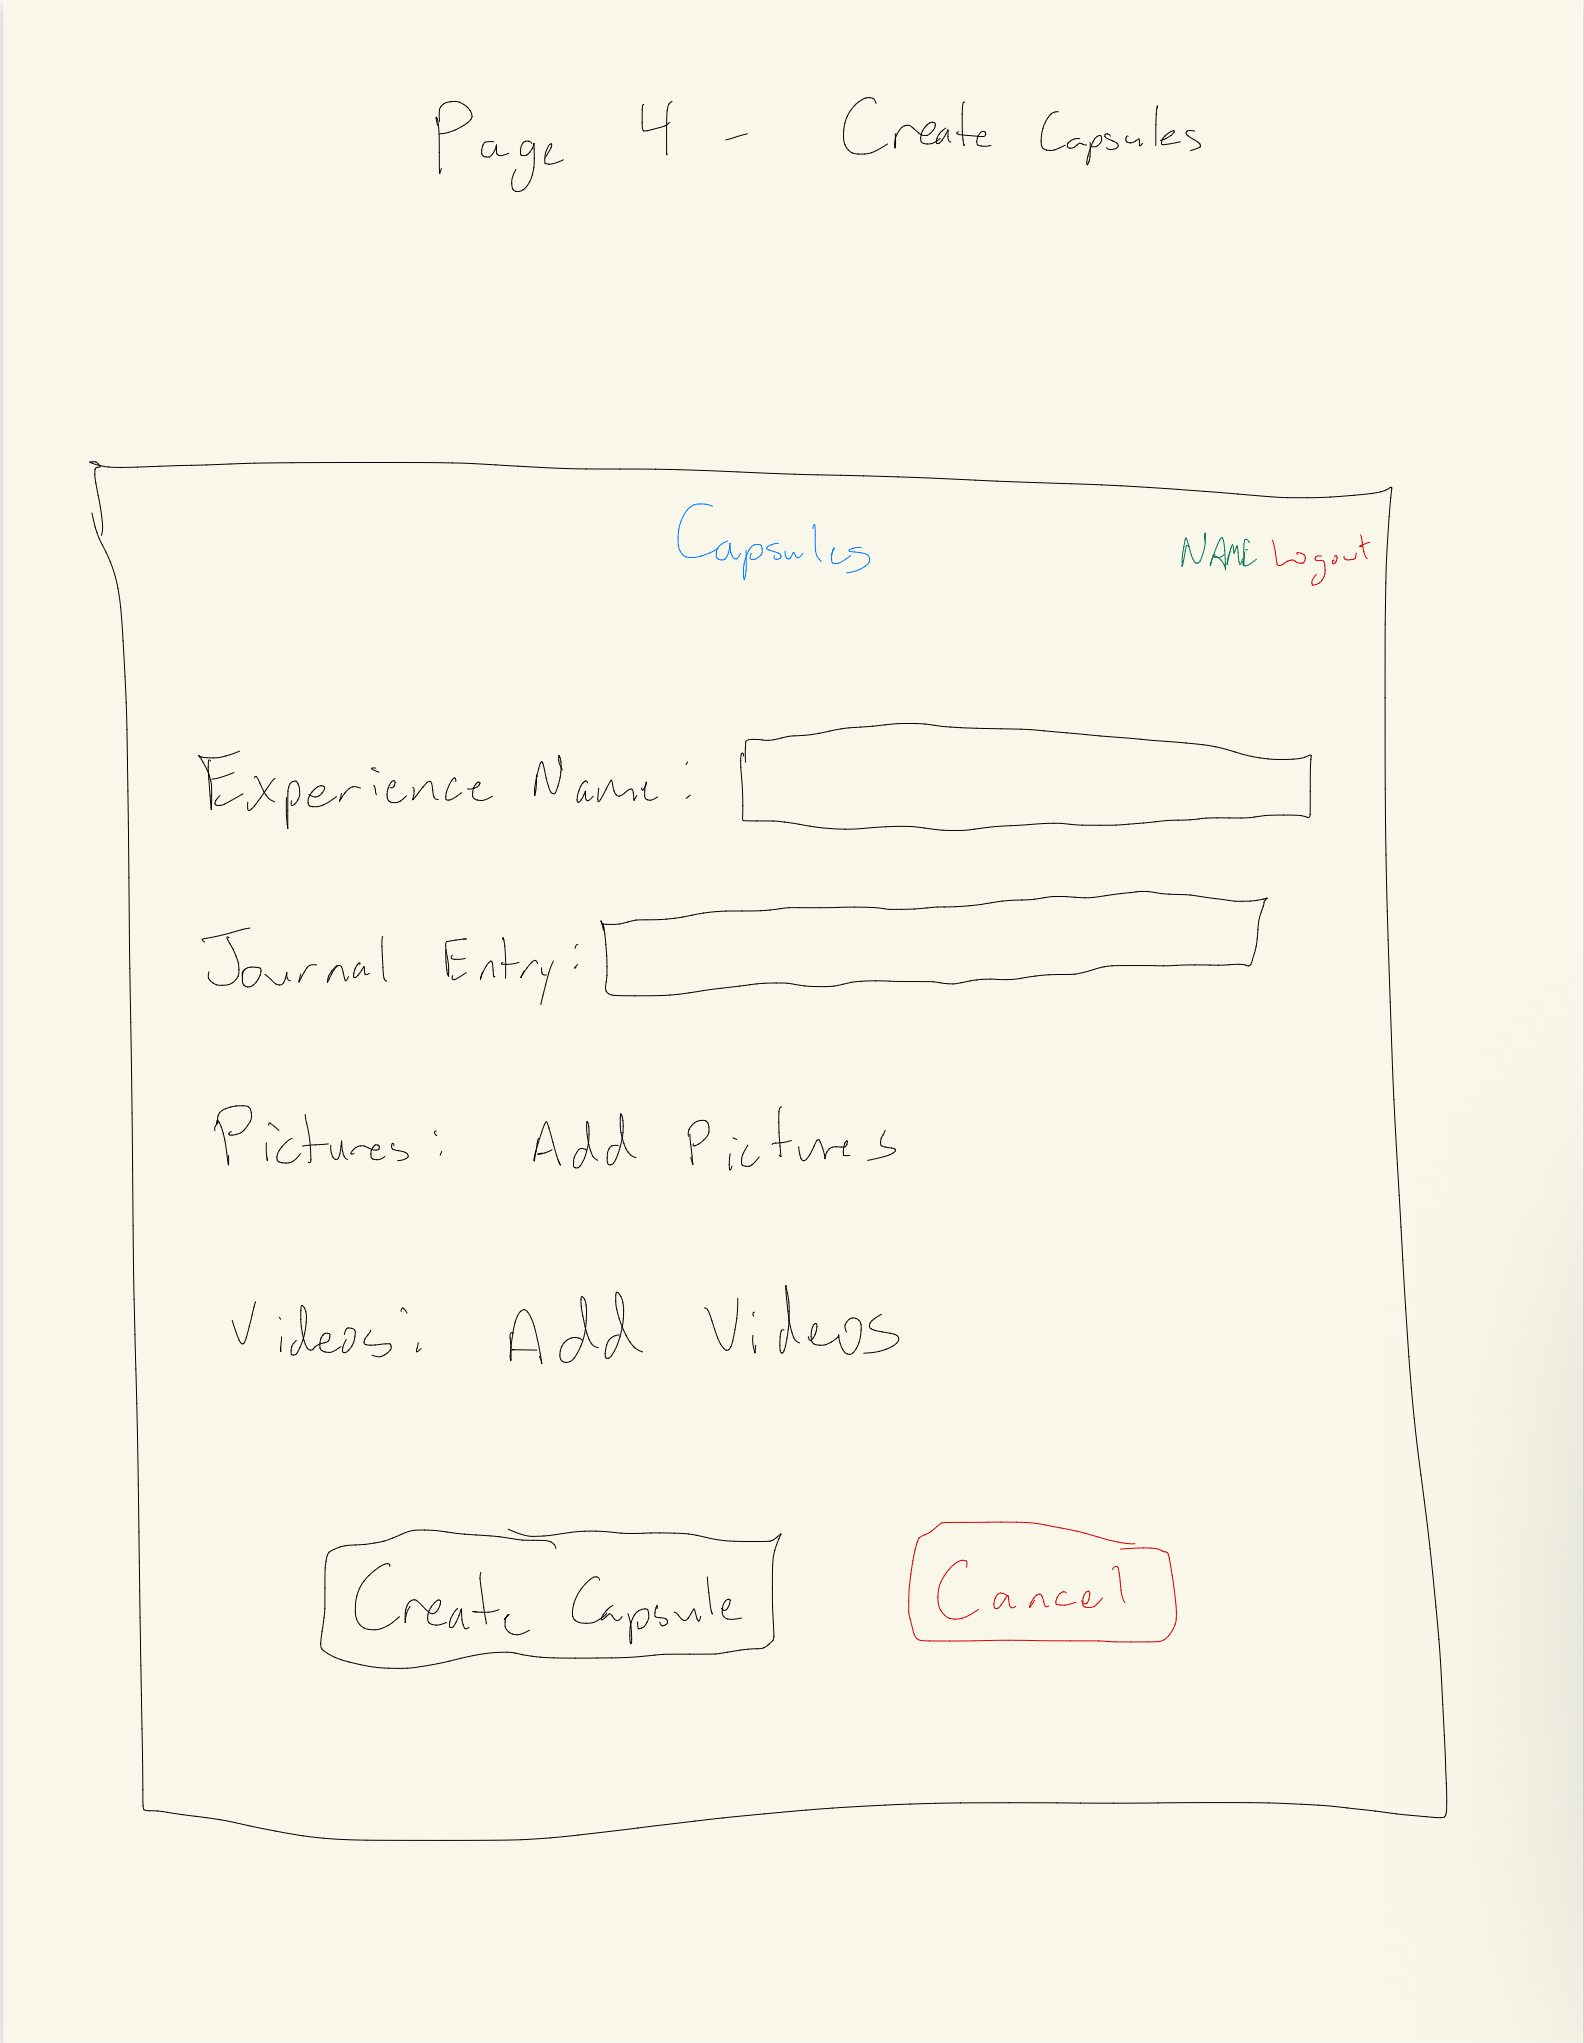 Page 4 - Create Capsules
Capsules NAME Logout
Experience Name:
Journal Entry:
Pictures: Add Pictures
Videos: Add Videos
Create Capsule Cancel